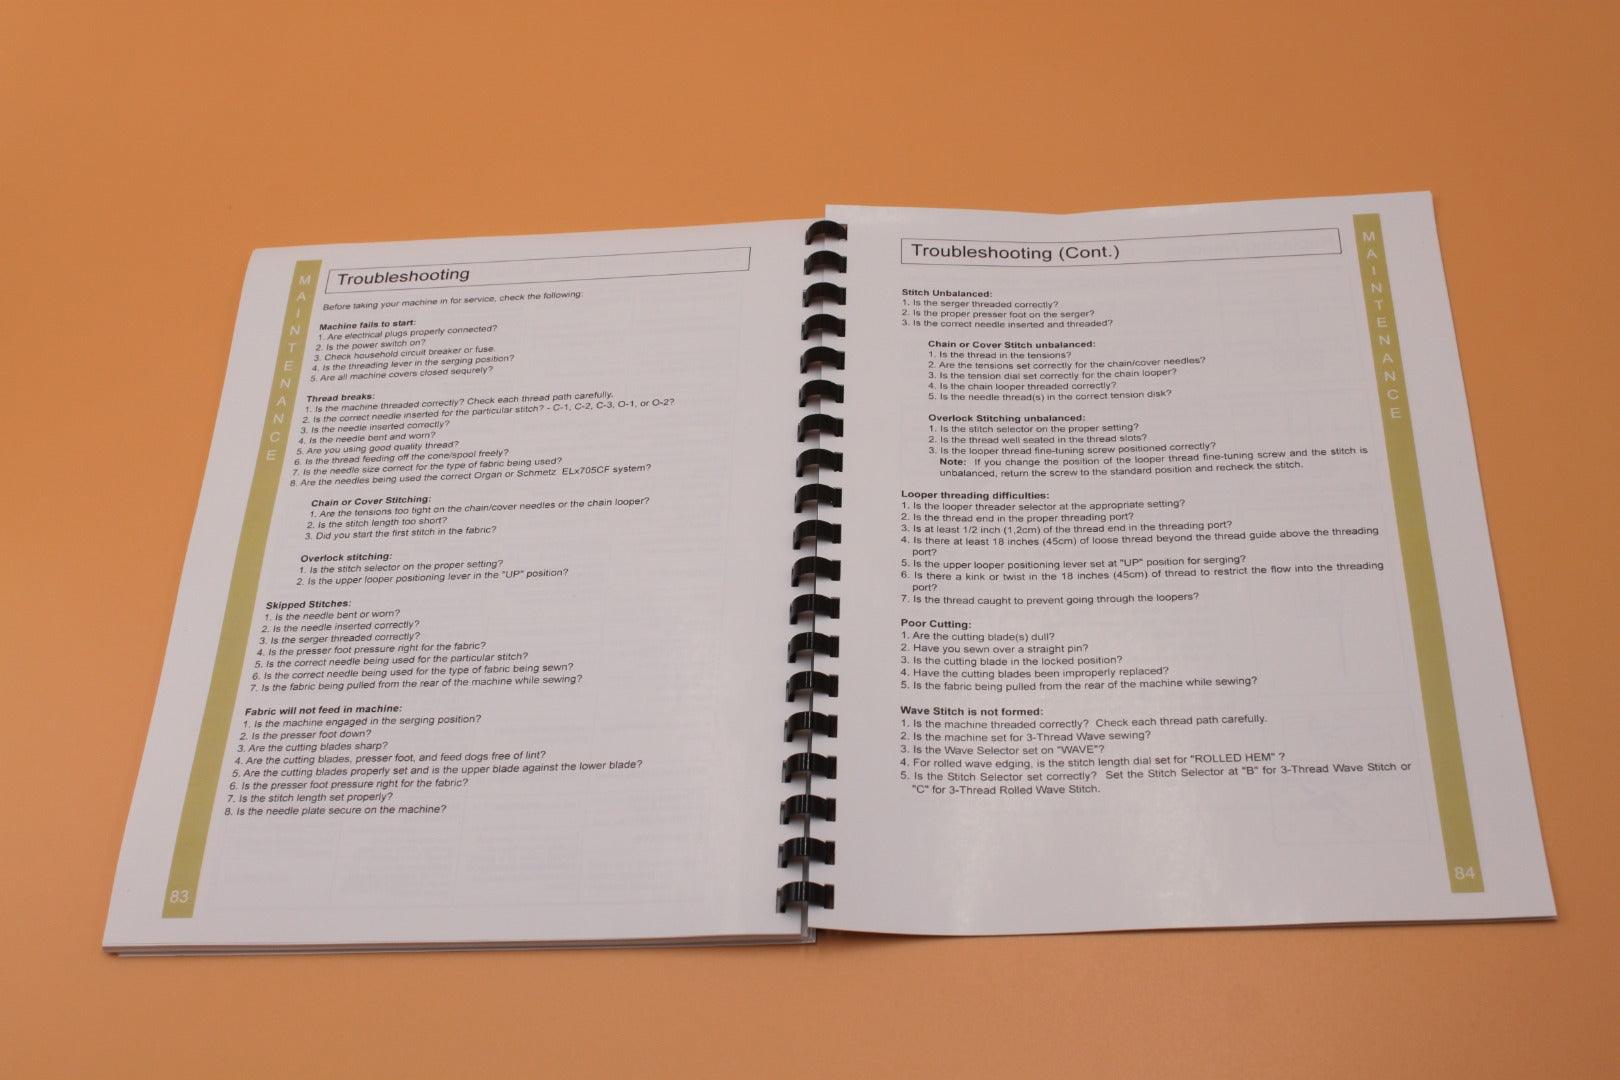 MAINTENANCE
Troubleshooting
Before taking your machine in for service, check the following:
Machine fails to start:
1. Are electrical plugs properly connected?
2. Is the power switch on?
3. Check household circuit breaker or fuse.
4. Is the threading lever in the serging position?
5. Are all machine covers closed sequrely?
Thread breaks:
1. Is the machine threaded correctly? Check each thread path carefully.
2. Is the correct needle inserted for the particular stitch? - C-1, C-2, C-3, O-1, or O-2?
3. Is the needle inserted correctly?
4. Is the needle bent and worn?
5. Are you using good quality thread?
6. Is the thread feeding off the cone/spool freely?
7. Is the needle size correct for the type of fabric being used?
8. Are the needles being used the correct Organ or Schmetz ELx705CF system?
Chain or Cover Stitching:
1. Are the tensions too tight on the chain/cover needles or the chain looper?
2. Is the stitch length too short?
3. Did you start the first stitch in the fabric?
Overlock stitching:
1. Is the stitch selector on the proper setting?
2. Is the upper looper positioning lever in the "UP" position?
Skipped Stitches:
1. Is the needle bent or worn?
2. Is the needle inserted correctly?
3. Is the serger threaded correctly?
4. Is the presser foot pressure right for the fabric?
5. Is the correct needle being used for the particular stitch?
6. Is the correct needle being used for the type of fabric being sewn?
7. Is the fabric being pulled from the rear of the machine while sewing?
Fabric will not feed in machine:
1. Is the machine engaged in the serging position?
2. Is the presser foot down?
3. Are the cutting blades sharp?
4. Are the cutting blades, presser foot, and feed dogs free of lint?
5. Are the cutting blades properly set and is the upper blade against the lower blade?
6. Is the presser foot pressure right for the fabric?
7. Is the stitch length set properly?
8. Is the needle plate secure on the machine?
83
Troubleshooting (Cont.)
MAINTENANCE
Stitch Unbalanced:
1. Is the serger threaded correctly?
2. Is the proper presser foot on the serger?
3. Is the correct needle inserted and threaded?
Chain or Cover Stitch unbalanced:
1. Is the thread in the tensions?
2. Are the tensions set correctly for the chain/cover needles?
3. Is the tension dial set correctly for the chain looper?
4. Is the chain looper threaded correctly?
5. Is the needle thread(s) in the correct tension disk?
Overlock Stitching unbalanced:
1. Is the stitch selector on the proper setting?
2. Is the thread well seated in the thread slots?
3. Is the looper thread fine-tuning screw positioned correctly?
Note: If you change the position of the looper thread fine-tuning screw and the stitch is
unbalanced, return the screw to the standard position and recheck the stitch.
Looper threading difficulties:
1. Is the looper threader selector at the appropriate setting?
2. Is the thread end in the proper threading port?
3. Is at least 1/2 inch (1,2cm) of the thread end in the threading port?
4. Is there at least 18 inches (45cm) of loose thread beyond the thread guide above the threading
port?
5. Is the upper looper positioning lever set at "UP" position for serging?
6. Is there a kink or twist in the 18 inches (45cm) of thread to restrict the flow into the threading
port?
7. Is the thread caught to prevent going through the loopers?
Poor Cutting:
1. Are the cutting blade(s) dull?
2. Have you sewn over a straight pin?
3. Is the cutting blade in the locked position?
4. Have the cutting blades been improperly replaced?
5. Is the fabric being pulled from the rear of the machine while sewing?
Wave Stitch is not formed:
1. Is the machine threaded correctly? Check each thread path carefully.
2. Is the machine set for 3-Thread Wave sewing?
3. Is the Wave Selector set on "WAVE"?
4. For rolled wave edging, is the stitch length dial set for "ROLLED HEM" ?
5. Is the Stitch Selector set correctly? Set the Stitch Selector at "B" for 3-Thread Wave Stitch or
"C" for 3-Thread Rolled Wave Stitch.
84